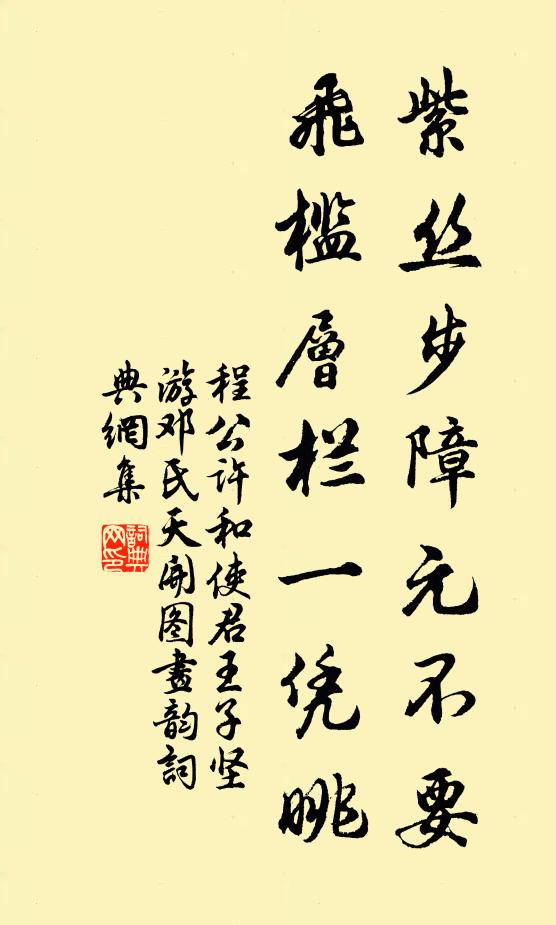 紫丝步障元不要
飛槛層栏一凭眺
程公许和使君王子坚
游邓氏天開图畫韵詞
典網集
詞典
网印